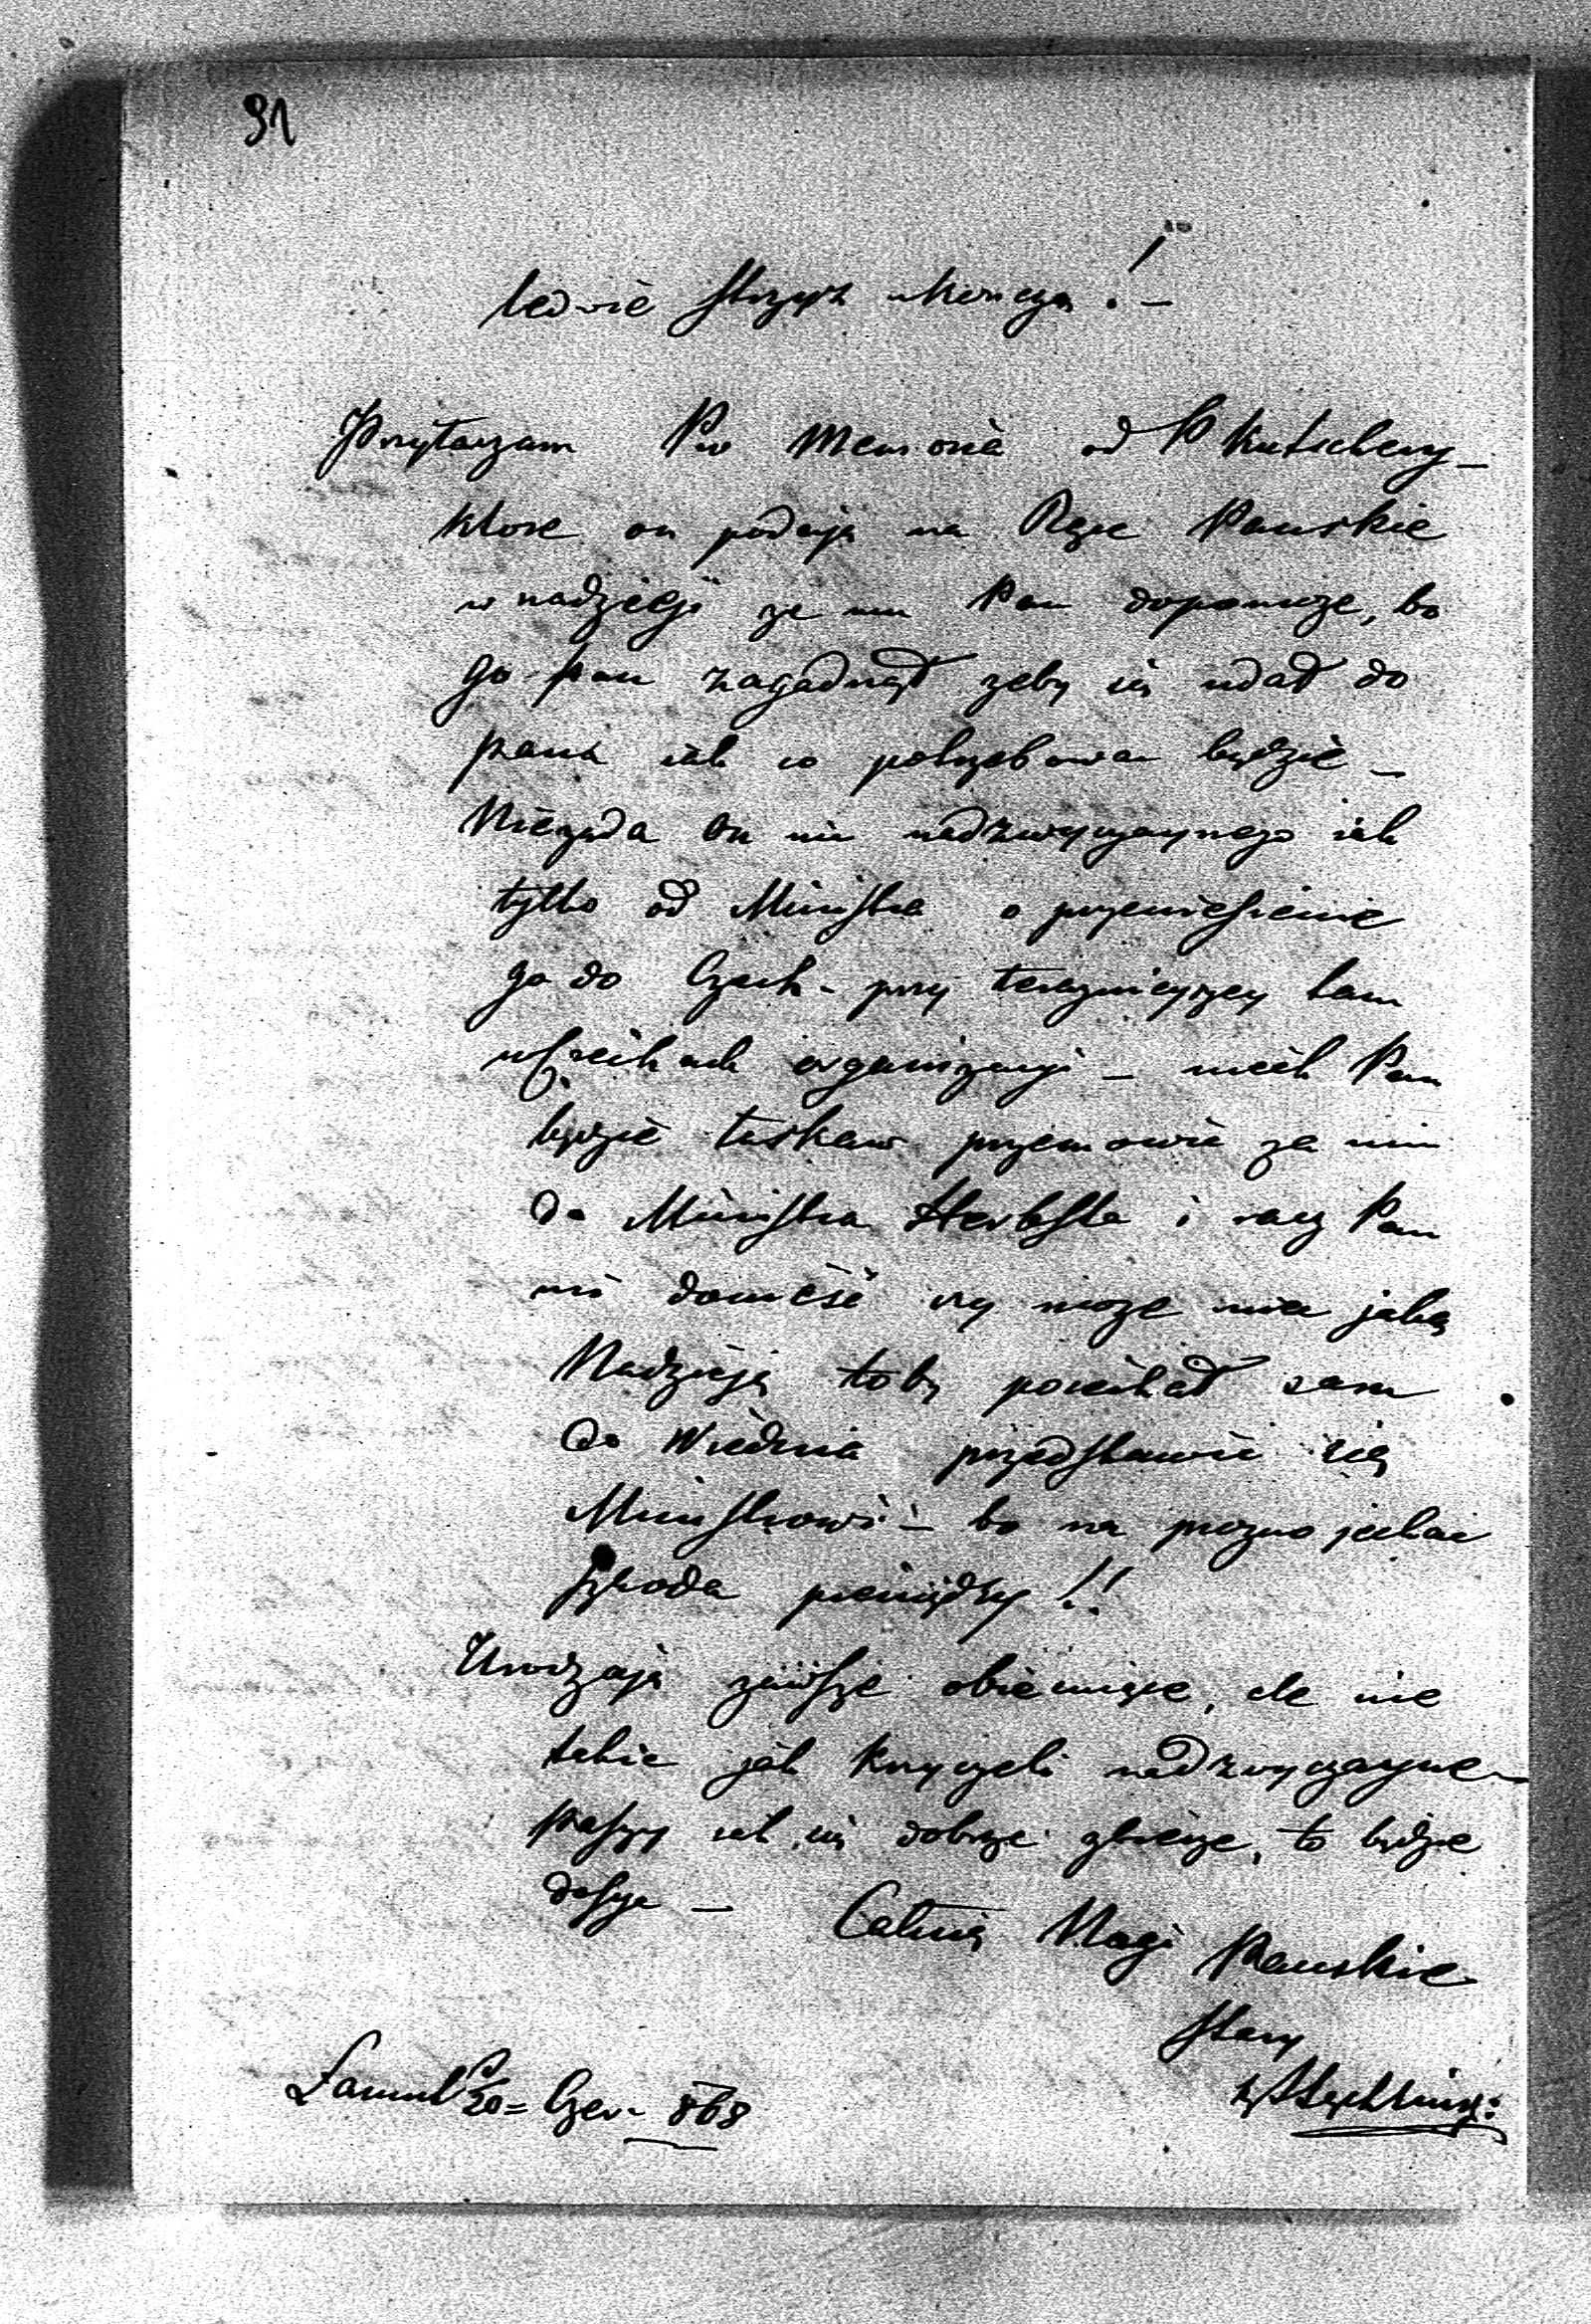 91
ledwie stryj ukończą!–
Przyłączam Pro Memoria od P Kutschery –
ktore on podaje na Ręce Panskie
w nadzieji ze mu Pan dopomoze, bo
go Pan zagadnął zeby się udał do
Pana iak co potrzebowac będzie –
Niezada On nic nadzwyczaynego iak
tylko od Ministra o przeniesienie
go do Czech – przy terazniejszey tam
organizacyi – niech Pan
będzie łaskaw przemowic za nim
do Ministra Herbsta i racz Pan
mi doniesć czy moze miec jaką
Nadzieję toby poiechał sam
do Wiednia przedstawic się
Ministrowi – bo na prozno jechac
szkoda pieniędzy!!
Urodzaje zawsze obiecuiące, ale nie
takie jak krzyczeli nadzwyczayne –
paszy iak się dobrze zbierze, to będzie
dosyc – Całuię Nogi Panskie
stary
20 = Czer. 868